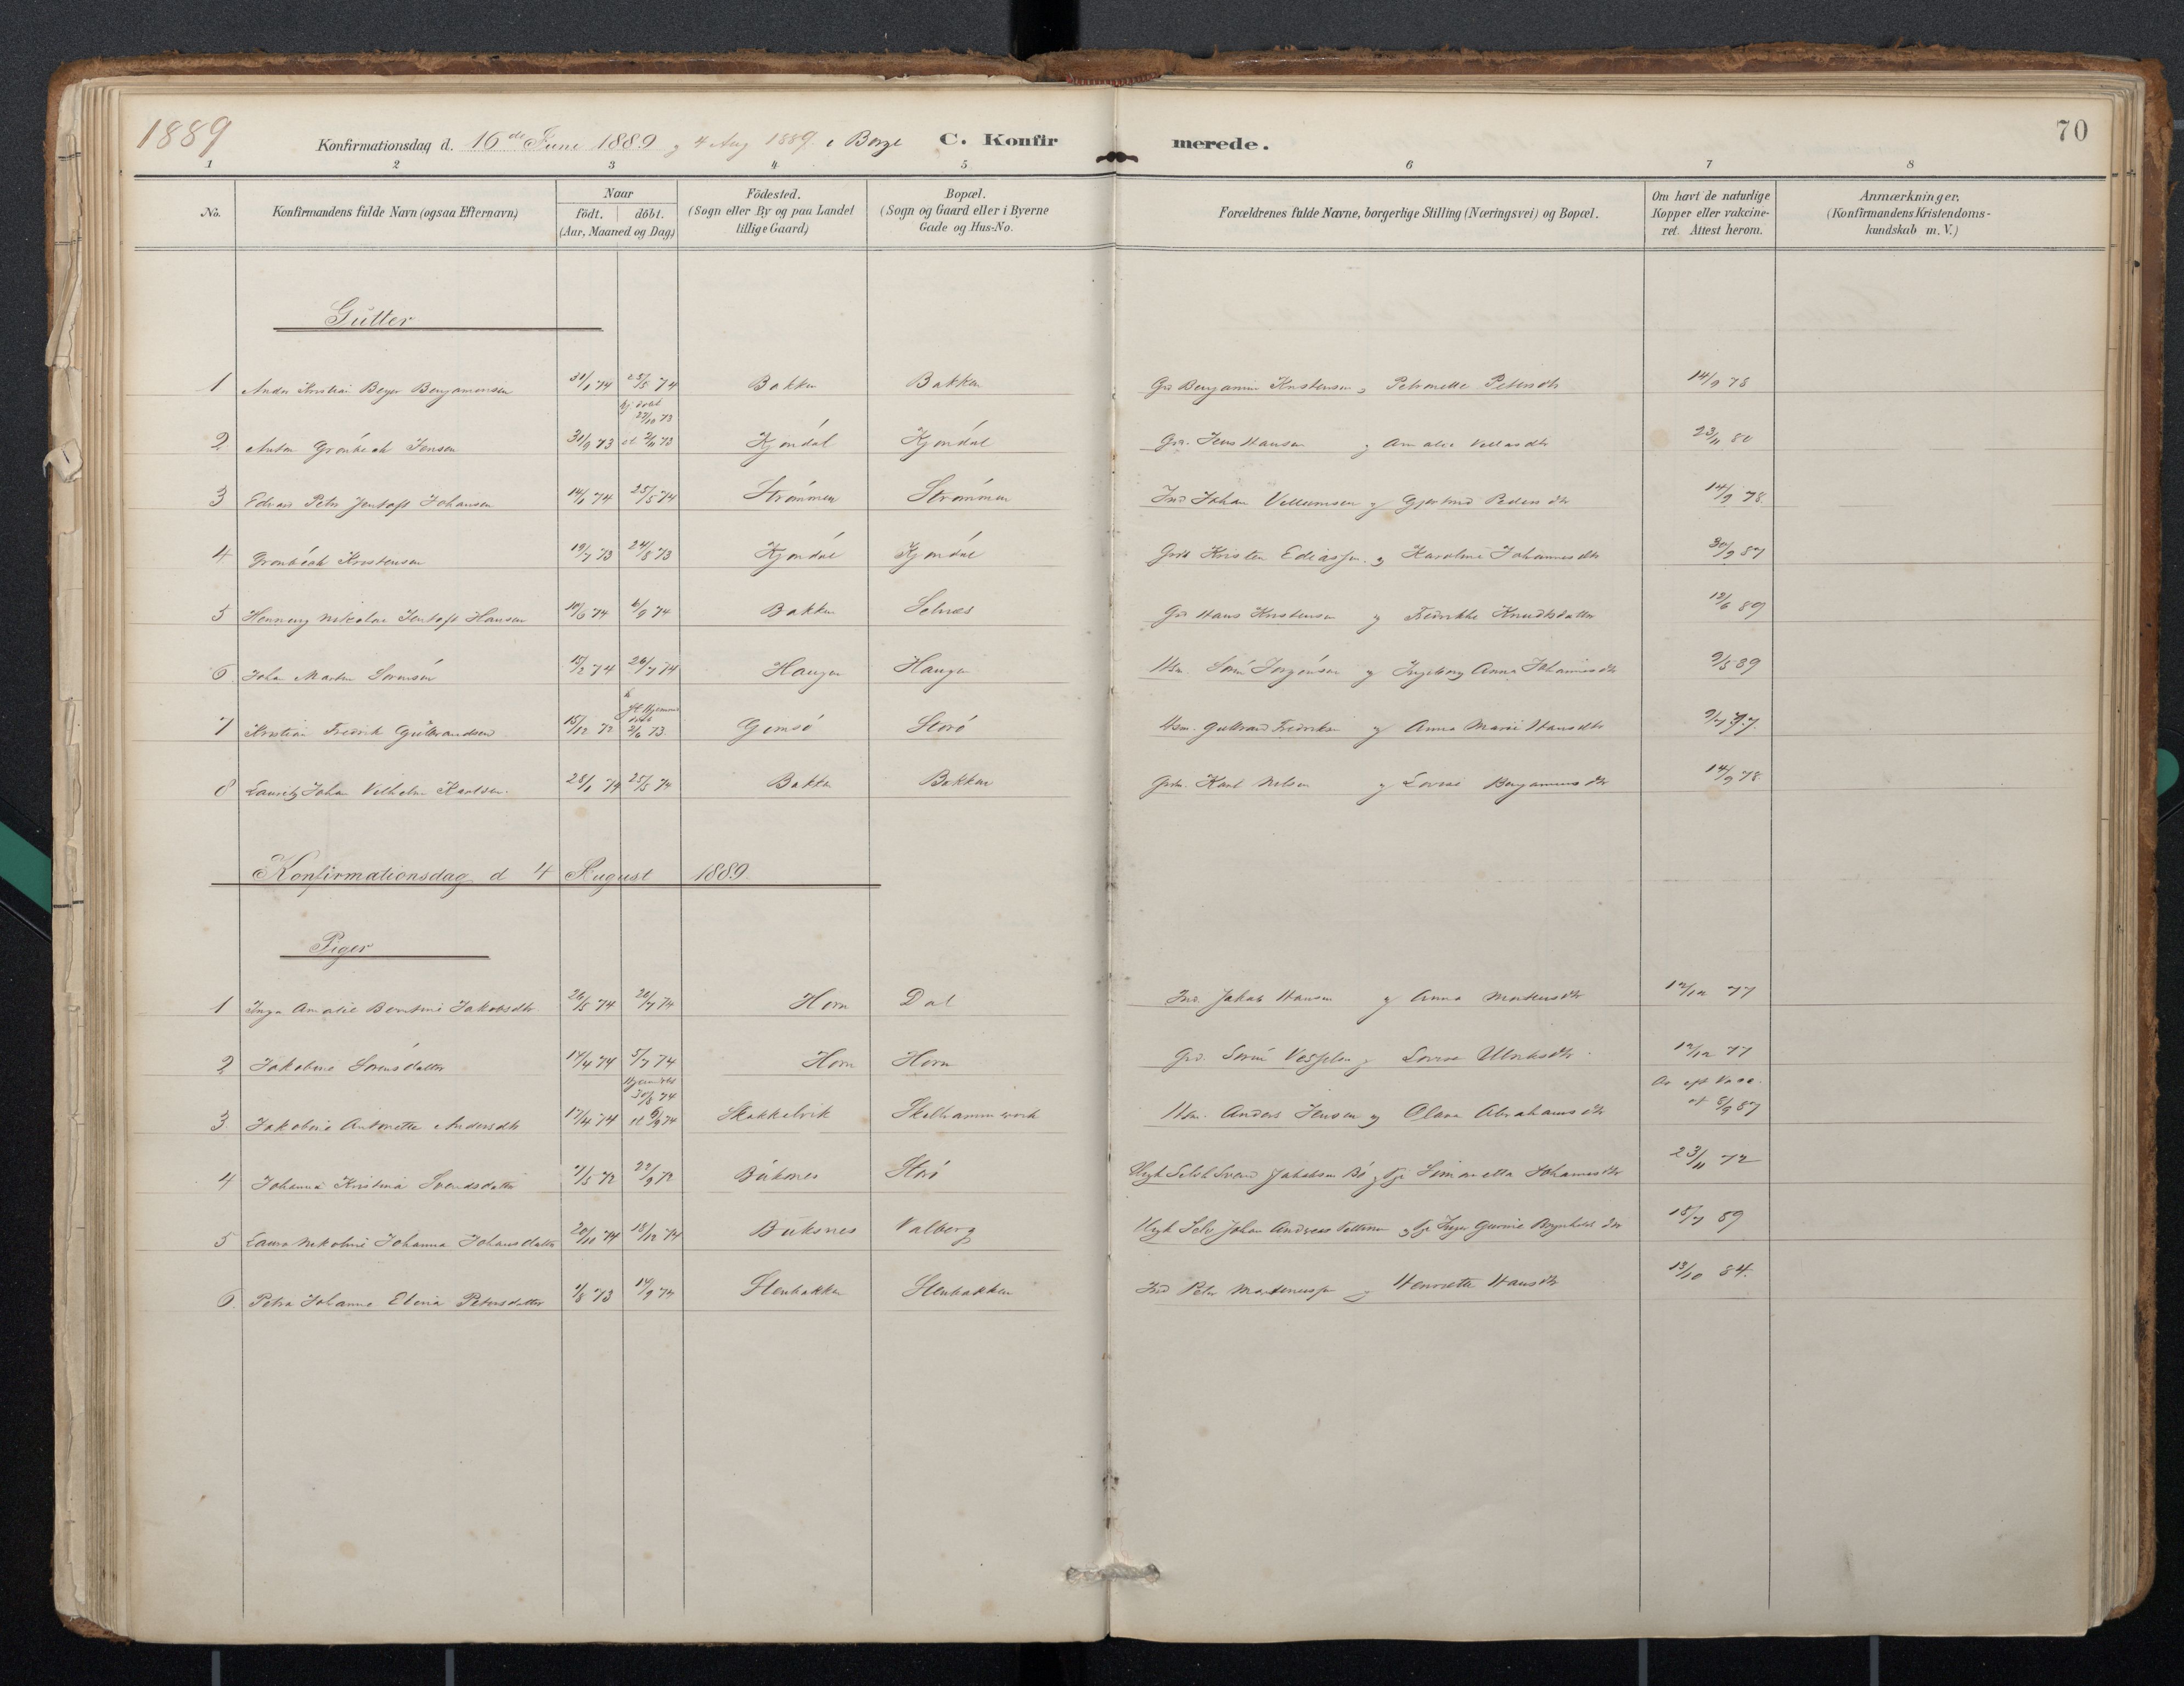 1889
Konfirmationsdag d. 16de Juni 1889 og 4 Aug 1889 i Borge C. Konfirmerede. 70
1 2 3 4 5 6 7 8
No. Konfirmandens fulde Navn (ogsaa Efternavn) Naar födt. döbt. (Aar, Maaned og Dag) Födested. (Sogn eller By og paa Landet tillige Gaard) Bopæl. (Sogn og Gaard eller i Byerne Gade og Hus-No. Forældrenes fulde Navne, borgerlige Stilling (Næringsvei) og Bopæl. Om havt de naturlige Kopper eller vakcineret. Attest herom. Anmærkninger, (Konfirmandens Kristendomskundskab m. V.)
Gutter
1 Anders Kristian Beyer Benjaminsen 31/1 74 25/5 74 Bakken Bakken Grd Benjamin Kristensen og Petronelle Petersdtr 14/9 78
2 Anton Grönbech Jensen 31/9 73 hj döbt 27/10 73 st 2/11 73 Kjöndal Kjöndal Grd. Jens Hansen og Amalie 23/11 80
3 Edvard Peter Jentoft Johansen 14/1 74 25/5 74 Strömmen Strömmen Ind Johan Vellumsen og Gjertrud Pedersdtr 14/9 78
4 Grönbech Kristensen 19/7 73 24/8 73 Kjöndal Kjöndal Grd Kristen Ediassen og Karoline Johannesdtr 30/9 87
5 Henning Nikolai Jentoft Hansen 10/6 74 6/9 74 Bakken Solnes Grd Hans Kristensen og Fredrikke Knudsdatter 12/6 89
6. Johan Martin Sörensen 15/2 74 26/7 74 Haugen Haugen Hsm. Sörn Jörgensen og Ingeborg Anna Johannesdtr 9/5 89
7 Kristian Fredrik Gulbrandsen 15/12 72 2/6 73 Gimsö Storö Hsm. Gulbrand Fredriksen og Anna Marie Hansdtr 9/7
8 Lauritz Johan Vilhelm Karlsen. 28/1 74 25/5 74 Bakken Bakken Grdm. Karl Nilsen og Lovise Benjaminsdtr 14/9 78
Konfirmationsdag d 4 August 1889
Piger
1 Inga Amalie Berntine Jakobsdtr. 26/5 74 26/7 74 Horn Dal Ind Jakob Hansen og Anna Mortensdtr 12/12 77
2 Jakobine Sörensdatter 14/4 74 5/7 74 Horn Horn Grd. Sörn og Lovise Ulriksdtr. 12/12 77
3. Jakobine Antonette Andersdtr 17/4 74 Hjemdöbt 30/8 74 st 6/9 74 Skakkelvik Hsm. Anders Jensen og Olava Abrahamsdtr af 8/9 87
4 Johanna Kristine Svendsdatter 7/5 72 22/9 72 Buksnes Storö Ungk Selvb Svend Jakobsen Bö og Pje Simonetta Johannesdtr 23/11 72
5 Laura Nikoline Johanna Johansdatter 20/11 74 18/12 74 Buksnes Valberg Ungk Selv Johan Andreas og Pje Inger 18/7 89
6. Petra Johanne Elena Petersdatter 1/8 73 14/9 74 Stenbakken Stenbakken Ind Peter Mortenussen og Henriette Hansdtr 13/10 84.